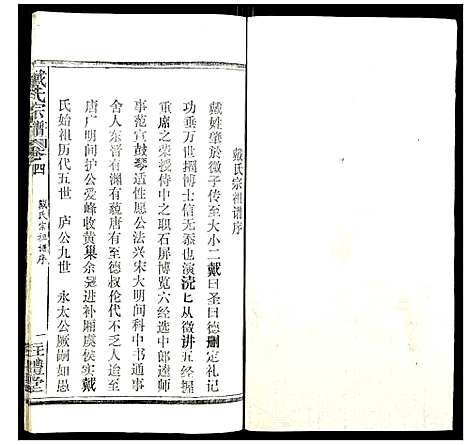 戴氏宗祖谱序
戴姓肇於微子传至大小二戴曰圣曰德删定礼记
功垂万世揖博士信无忝也演浇匕从徵讲五经握
重席之荣授侍中之职石屏博览六经选中郎逵师
事范宣鼓琴适性愿公法兴宋大明间科中书通事
舍人东晋有渊有藐唐有至德叔伦代不乏人迨至
唐广明间护公爱峰收黄巢余吴进补厢虞侯实戴
氏始祖历代五世 庐公九世 永太公厥嗣如愚
戴氏宗谱 卷之四
戴氏宗祖谱序
一
注礼堂